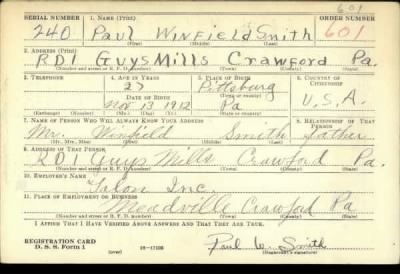 601
SERIAL NUMBER 1. NAME (Print) ORDER NUMBER
240 Paul Winfield Smith 601
(First) (Middle) (Last)
2. ADDRESS (Print)
RD1 Guys Mills Crawford Pa.
(Number and street or R. F. D. number) (Town) (County) (State)
3. TELEPHONE 4. AGE IN YEARS 5. PLACE OF BIRTH 6. COUNTRY OF CITIZENSHIP
27 Pittsburg
DATE OF BIRTH (Town or county)
Nov 13 1912 Pa U.S.A.
(Exchange) (Number) (Mo.) (Day) (Yr.) (State or country)
7. NAME OF PERSON WHO WILL ALWAYS KNOW YOUR ADDRESS 8. RELATIONSHIP OF THAT PERSON
Mr. Winfield Smith father
(Mr., Mrs., Miss) (First) (Middle) (Last)
9. ADDRESS OF THAT PERSON
RD1 Guys Mills Crawford Pa.
(Number and street or R. F. D. number) (Town) (County) (State)
10. EMPLOYER'S NAME
Talon Inc.
11. PLACE OF EMPLOYMENT OR BUSINESS
Meadville Crawford Pa
(Number and street or R. F. D. number) (Town) (County) (State)
I AFFIRM THAT I HAVE VERIFIED ABOVE ANSWERS AND THAT THEY ARE TRUE.
REGISTRATION CARD
D. S. S. Form 1 (over) 16-17105 Paul W. Smith
(Registrant's signature)